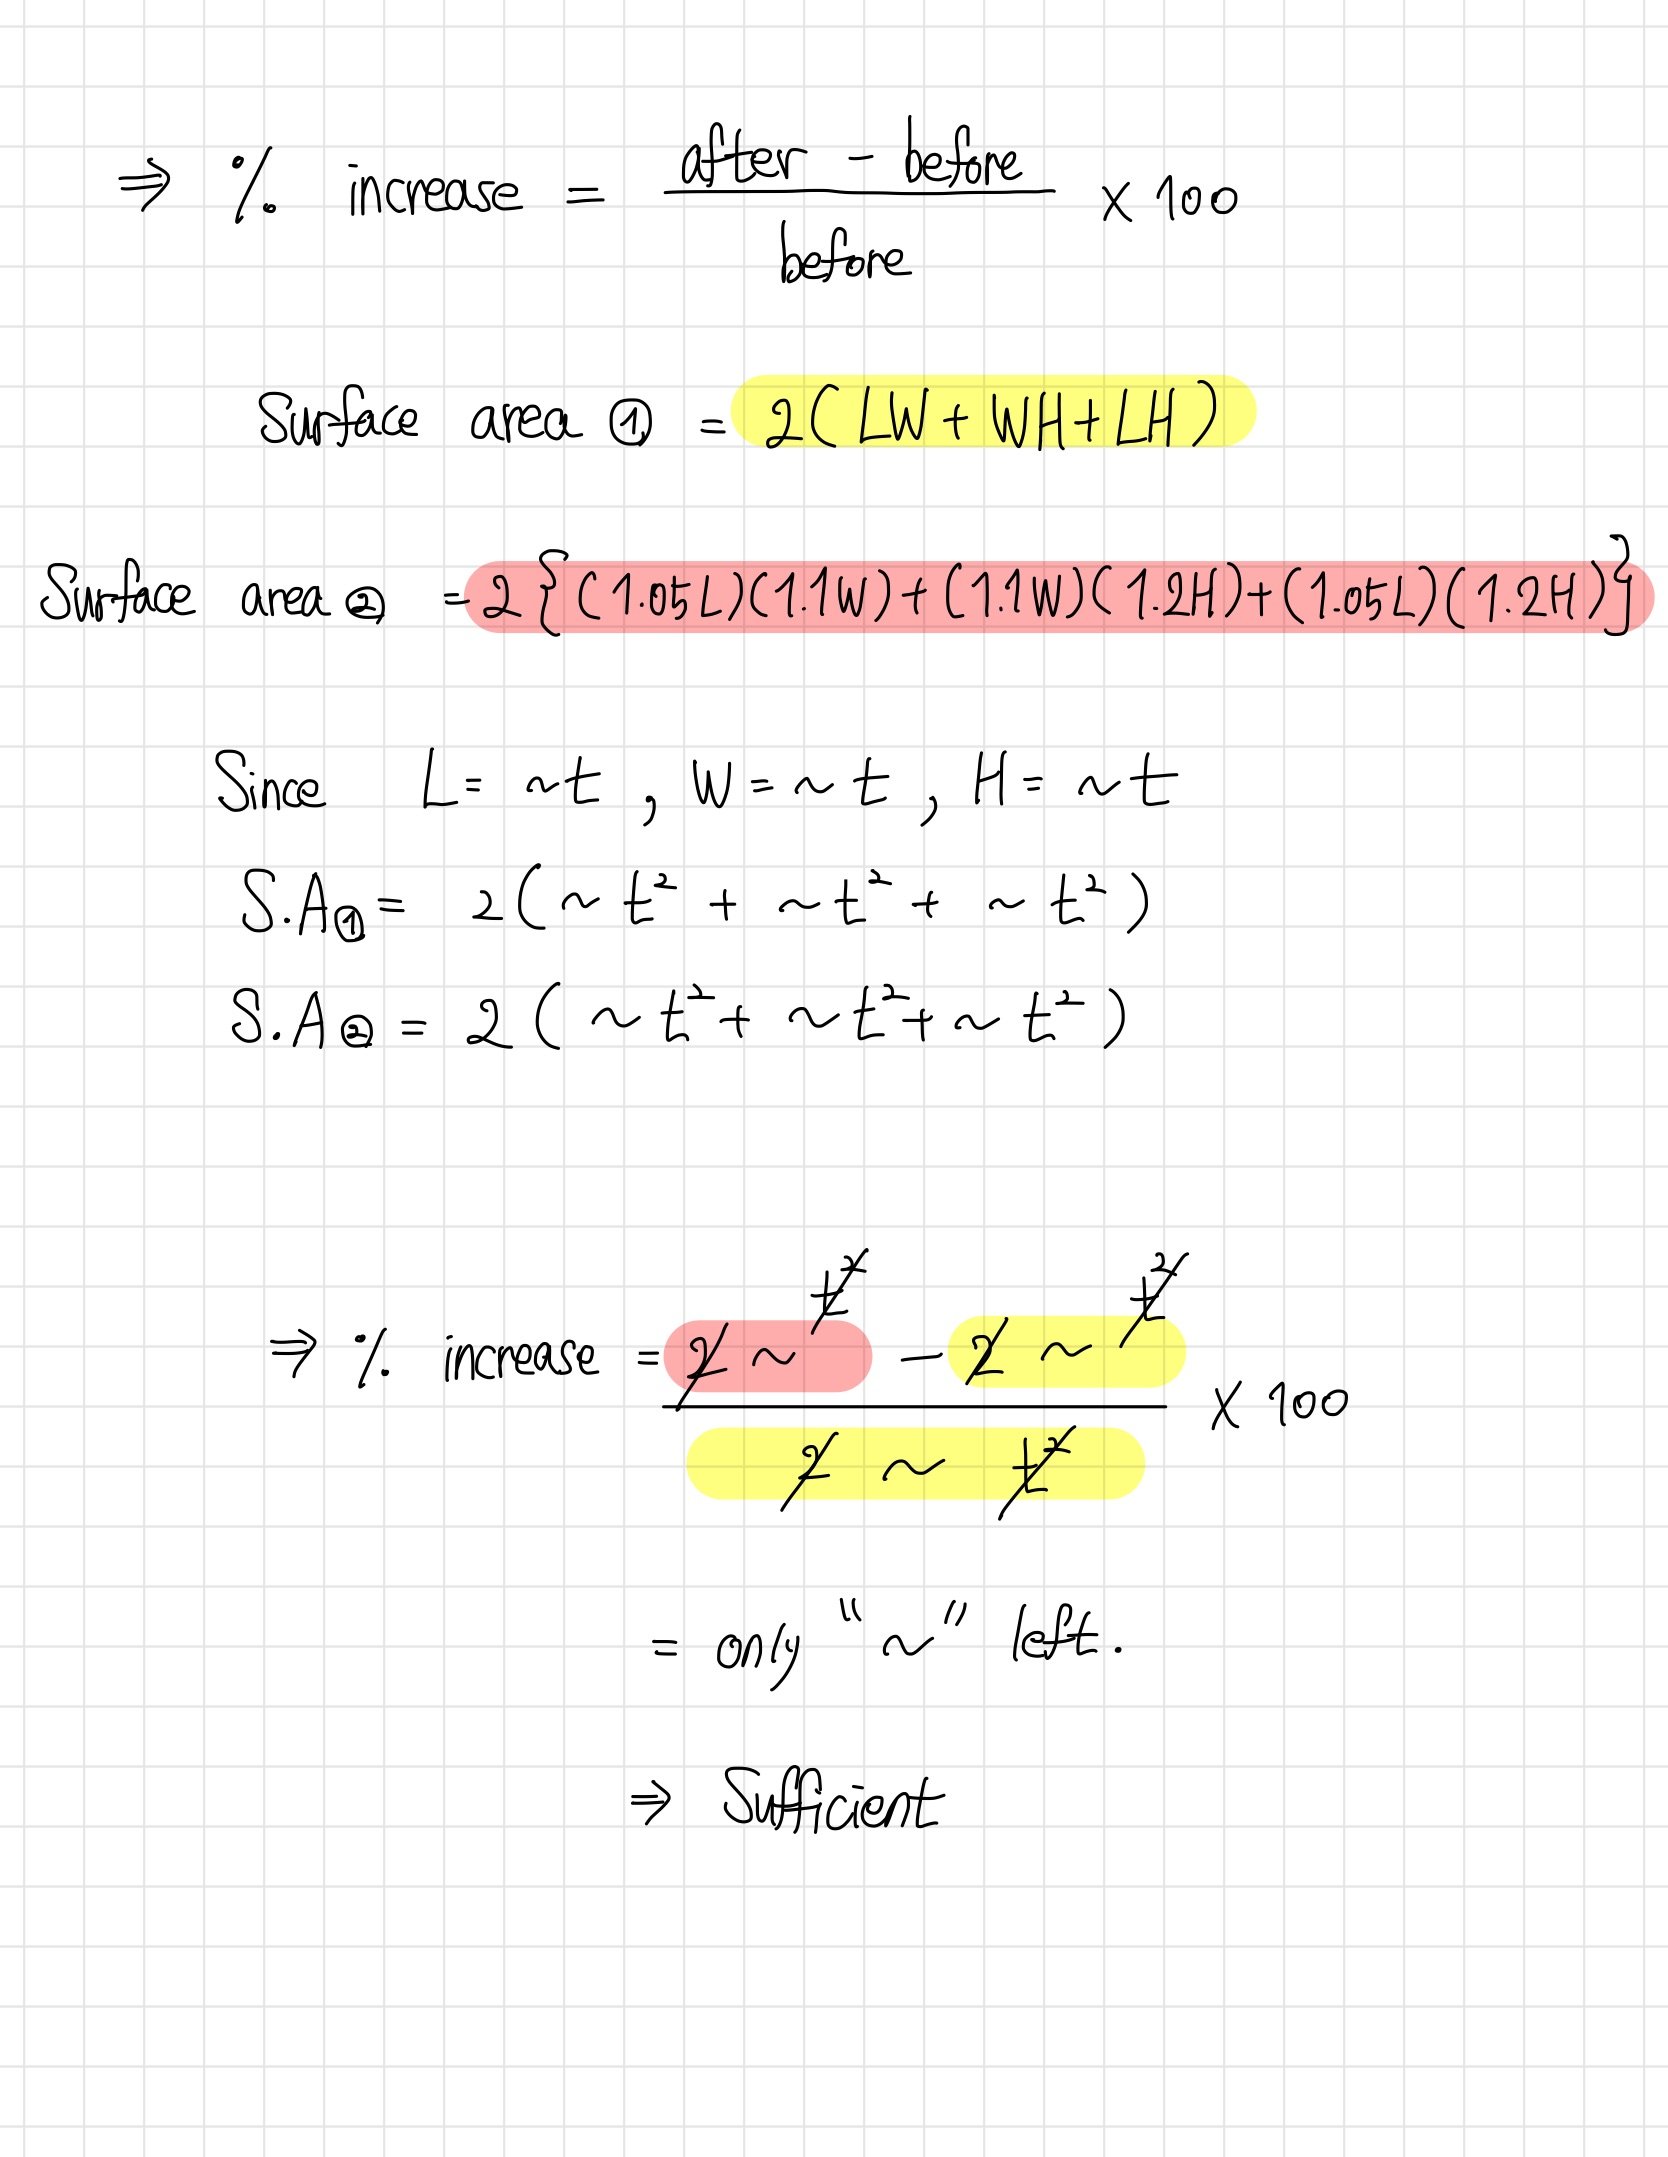 ⇒ % increase = after - before / before × 100
Surface area ① = 2(LW + WH + LH)
Surface area ② = 2{(1.05L)(1.1W)+(1.1W)(1.2H)+(1.05L)(1.2H)}
Since L = ~t , W = ~t , H = ~t
S.A① = 2(~t² + ~t² + ~t²)
S.A② = 2(~t² + ~t² + ~t²)
⇒ % increase = 2~t² - 2~t² / 2~t² × 100
= only "~" left.
⇒ Sufficient